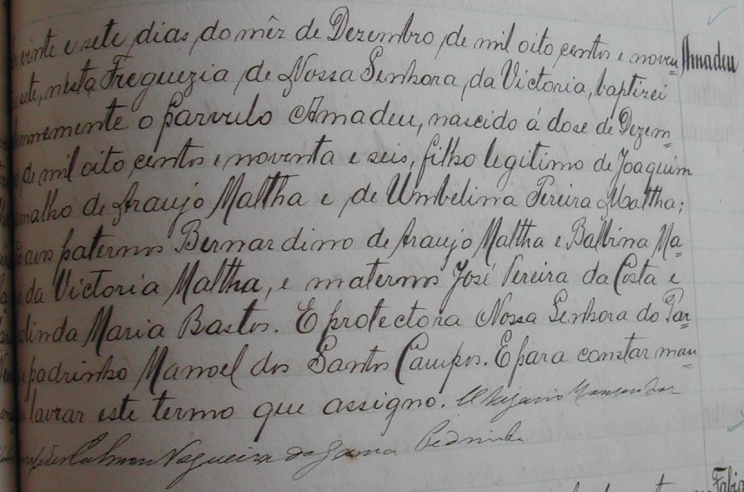 vinte e sete dias do mêz de Dezembro de mil oito centos e noven= Amadeu
sete, nesta Freguezia de Nossa Senhora da Victoria, baptizei
nemente o parvulo Amadeu, nascido á dose de Dezem=
de mil oito centos e noventa e seis, filho legitimo de Joaquim
malho de Araujo Maltha e de Umbelina Pereira Malttha;
avos paternos Bernardino de Araujo Maltha e Balbina Ma=
da Victoria Maltha, e maternos José Pereira da Costa e
linda Maria Bastos. É protectora Nossa Senhora do Par=
padrinho Manoel dos Santos Campos. E para constar man=
lavrar este termo que assigno. O Vigario
Calmon Nogueira da Gama